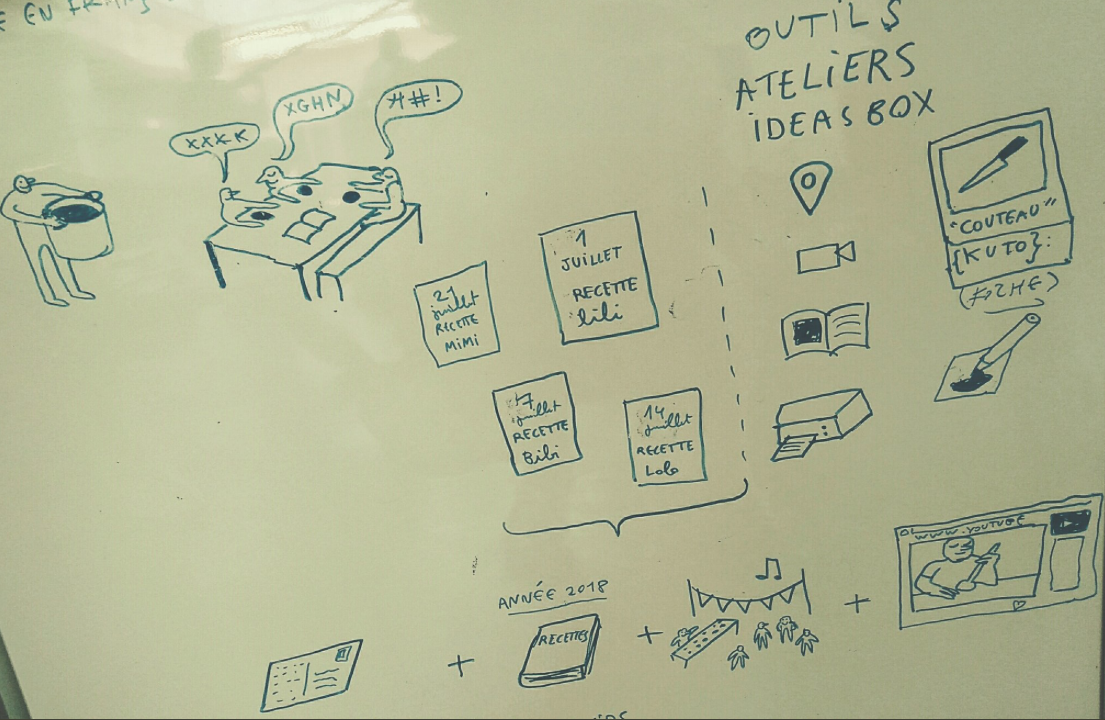 EN
XXXK
XGHN
#!
21
juillet
RECETTE
MiMi
1
JUILLET
RECETTE
lili
17
juillet
RECETTE
Bibi
14
juillet
RECETTE
Lolo
OUTiLS
ATELiERS
iDEAS BOX
"COUTEAU"
{KUTO}:
ANNÉE 2018
RECETTES
+
+
+
WWW.YOUTUBE